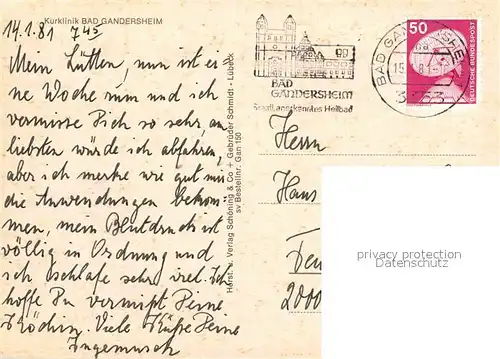 Kurklinik BAD GANDERSHEIM
14.1.81 7 45
Mein Lütten, nun ist ei=
ne Woche rum und ich
vermisse Dich so sehr, am
liebsten würde ich abfahren,
aber ich merke wie gut mir
die Anwendungen bekom=
men, mein Blutdruck ist
völlig in Ordnung und
ich schlafe sehr viel. Ich
hoffe Du vermißt Deine
Viele Küße Deine
Horst u. Verlag Schöning & Co + Gebrüder Schmidt - Lübeck
sv Bestellnr. Gan 150
BAD
GANDERSHEIM
Staatl. anerkanntes Heilbad
BAD GANDERSHEIM
15.
3353
50
DEUTSCHE BUNDESPOST
Herrn
Hans
2000
privacy protection
Datenschutz